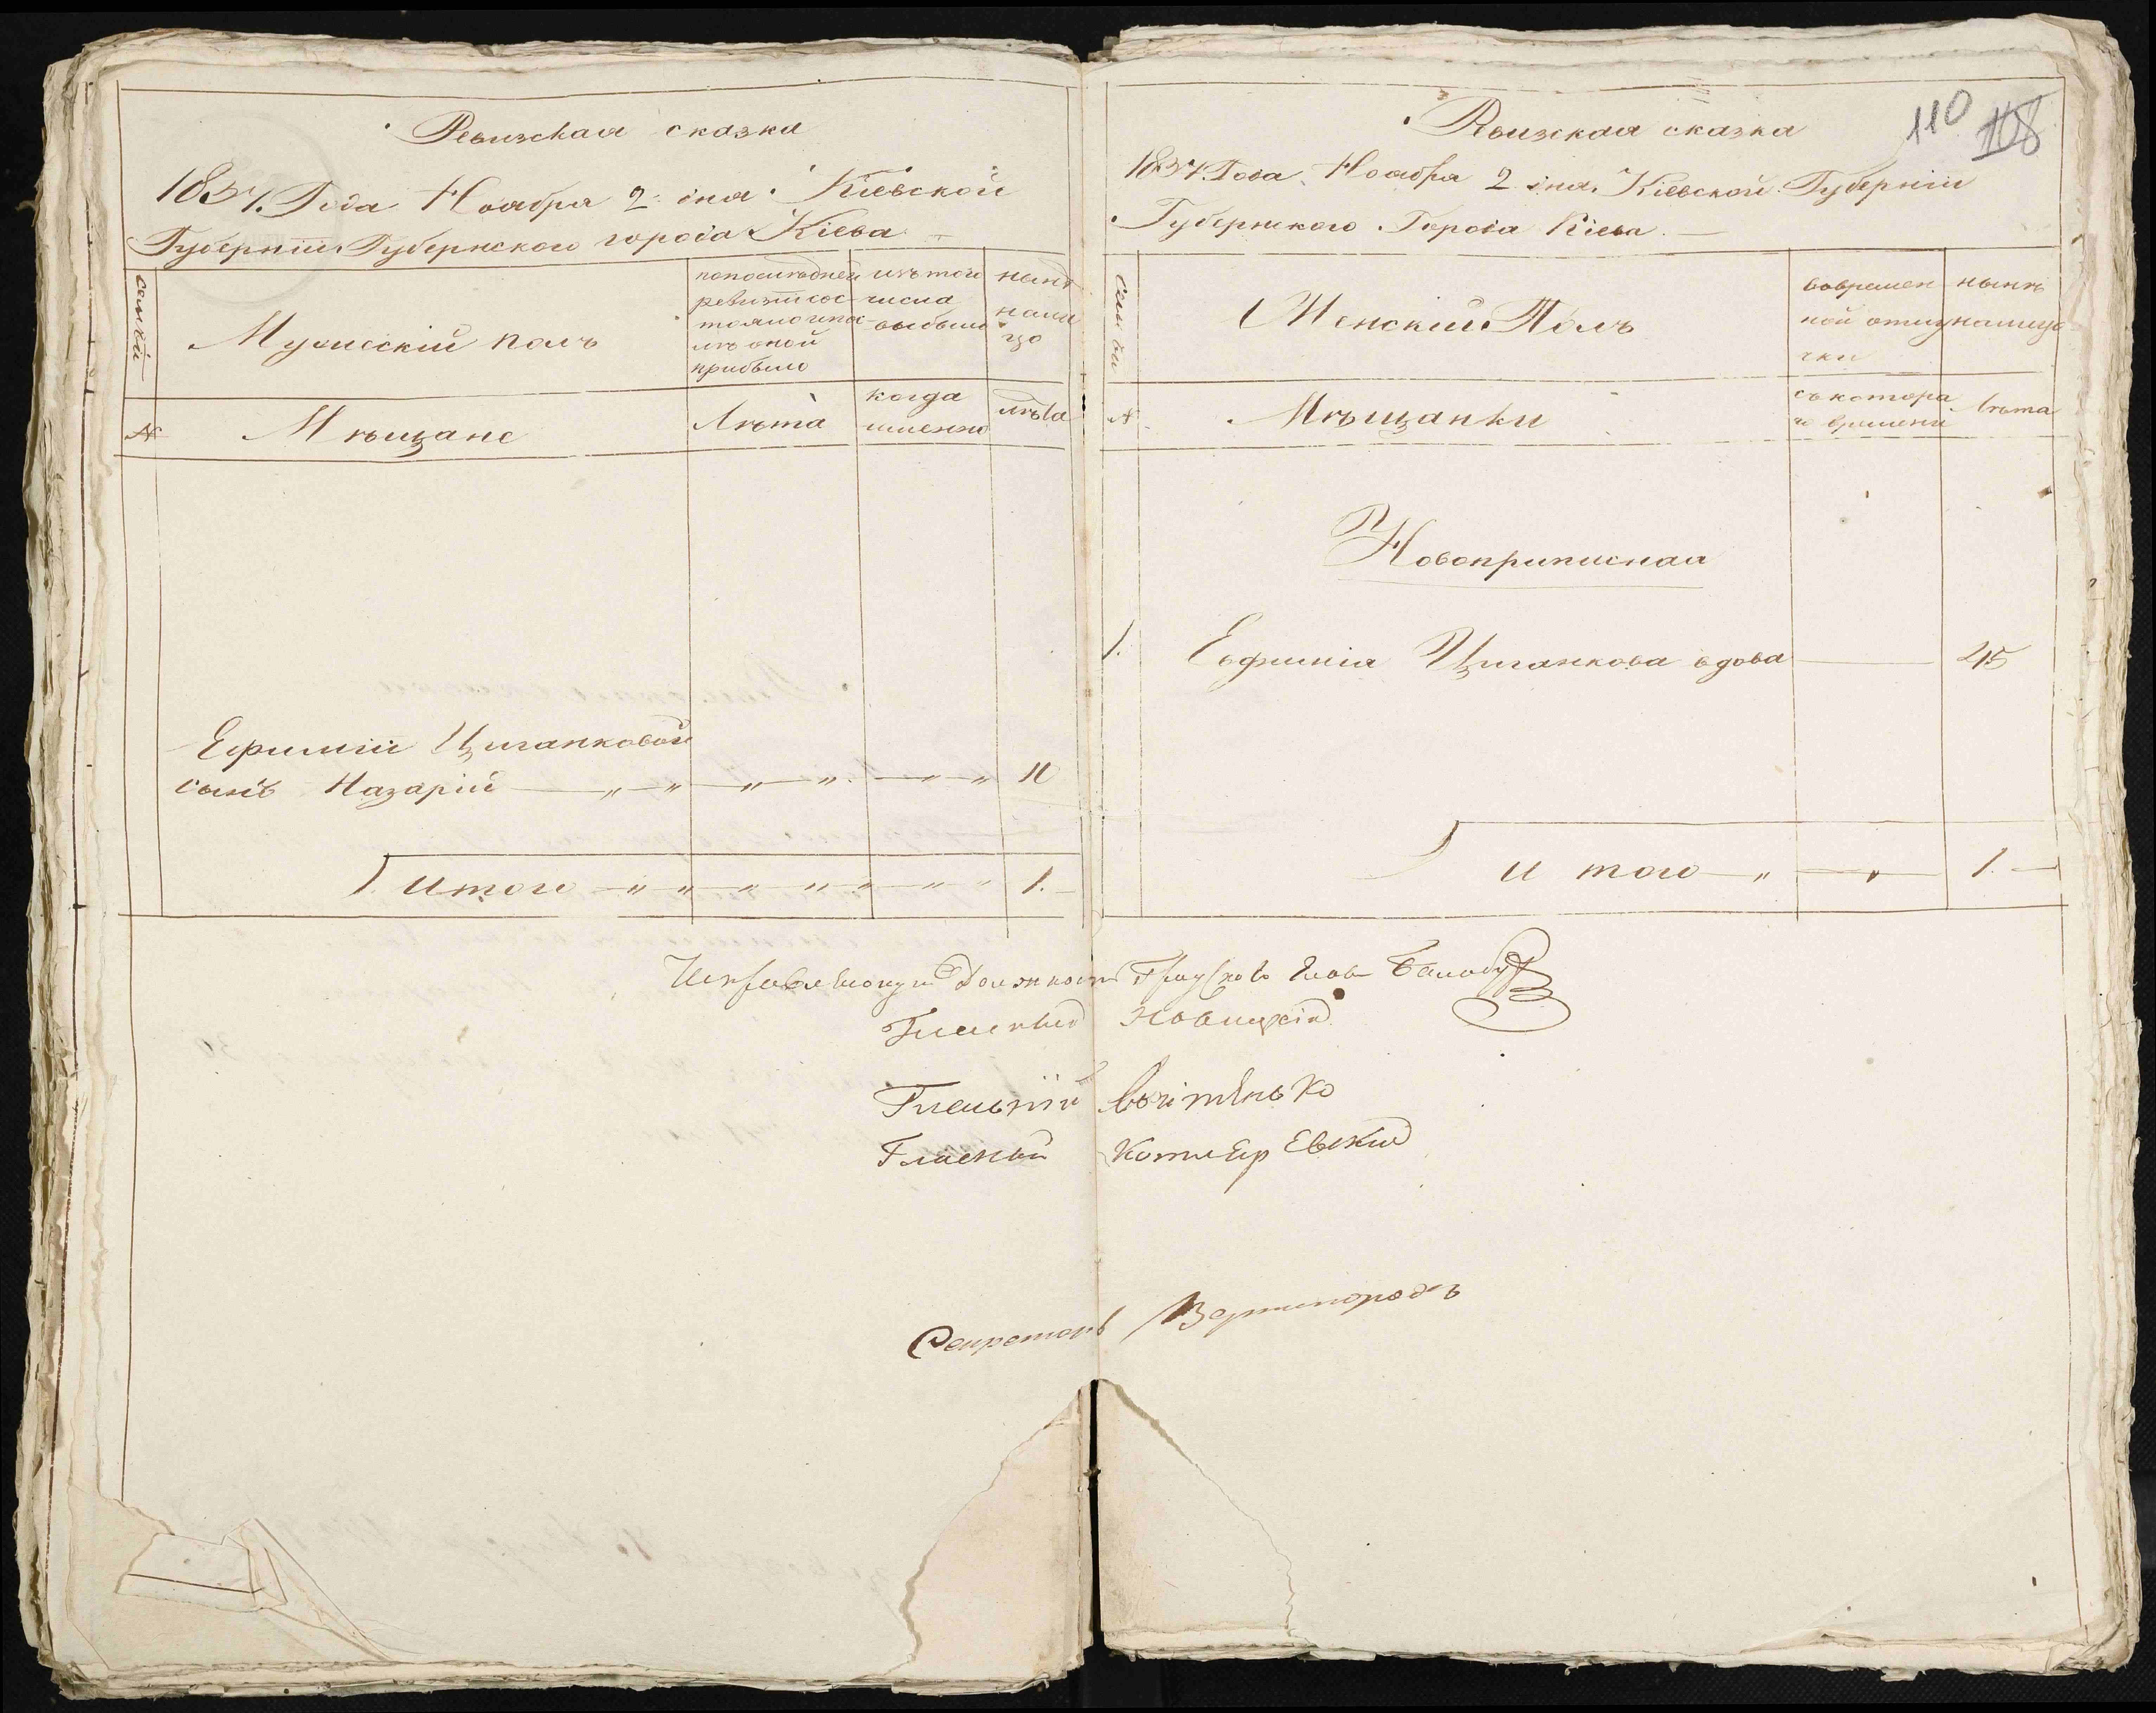 Ревизская сказка
Года Ноября 2 дня Кіевской
Губерніи Губернскаго города Кіева
семьи
Мужескій полъ
по последней
ревизіи сос-
тояло и по-
слѣ оной
прибыло
изъ того
числа
выбыло
нынѣ
на ли
цо
№
Мѣщане
Лѣта
когда
именно
лѣта
Ефиміи Циганковой
сынъ Назарій — „ — „ — „ — „ — „ — „
Итого — „ „ „ „ „ „ „ 1.
110
108
Ревизская сказка
Года Ноября 2 дня Кіевской Губерніи
Губернскаго Города Кіева
Семьи
Женскій Полъ
во времен
ной отлу
чки
нынѣ
на лицо
№
Мѣщанки
съ котора
го времени
Лѣта
Новоприписная
1. Евфимія Циганкова вдова — 45
Итого — „ — „ — 1. —
Должность
Гласный Новицкій
Гласный
Гласный
Секретарь